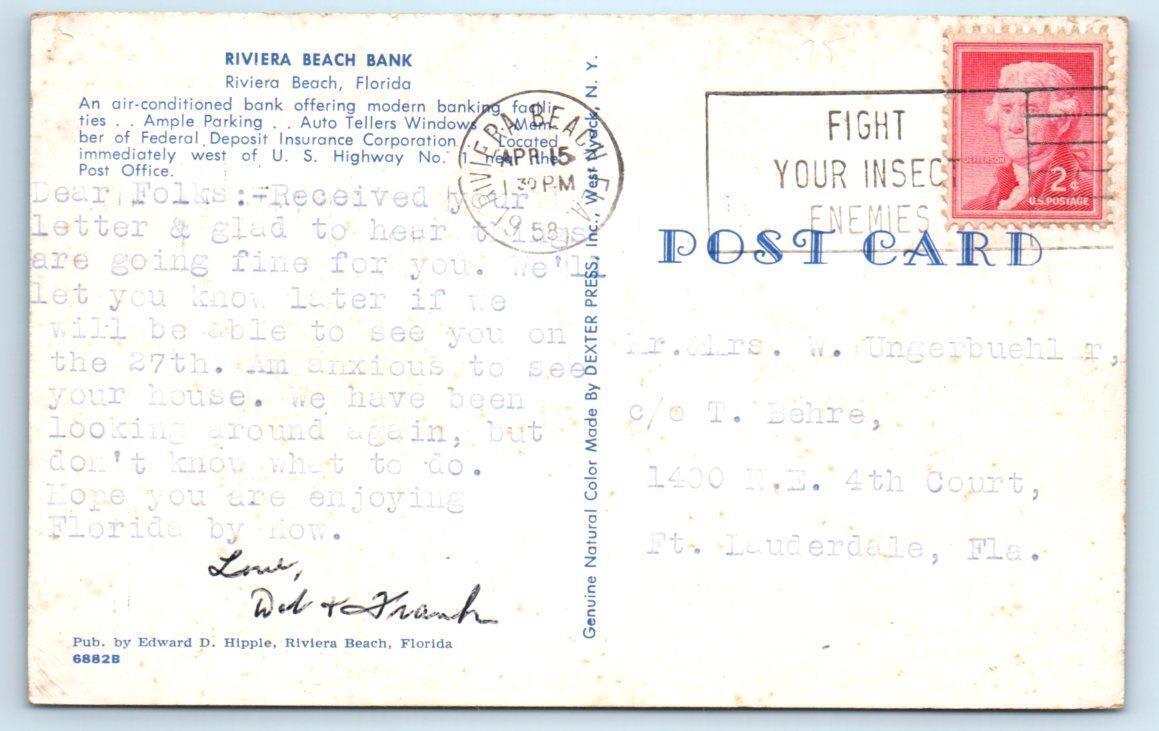 RIVIERA BEACH BANK
Riviera Beach, Florida
An air-conditioned bank offering modern banking facili-
ties . . Ample Parking . . Auto Tellers Windows . . Mem-
ber of Federal Deposit Insurance Corporation . . Located
immediately west of U. S. Highway No. 1 near the
Post Office.
Dear Folks:-Received your
letter & glad to hear things
are going fine for you. We'll
let you know later if we
will be able to see you on
the 27th. Am anxious to see
your house. We have been
looking around again, but
don't know what to do.
Hope you are enjoying
Florida by now.
Love,
& Frank
Pub. by Edward D. Hipple, Riviera Beach, Florida
6882B
Genuine Natural Color Made By DEXTER PRESS, Inc., West Nyack, N. Y.
RIVIERA BEACH FLA
APR 15
1 30 PM
1958
FIGHT
YOUR INSECT
ENEMIES
JEFFERSON
2¢
U.S. POSTAGE
POST CARD
Mr.&Mrs. W. Ungerbuehler,
c/o T. Behre,
1400 N.E. 4th Court,
Ft. Lauderdale, Fla.